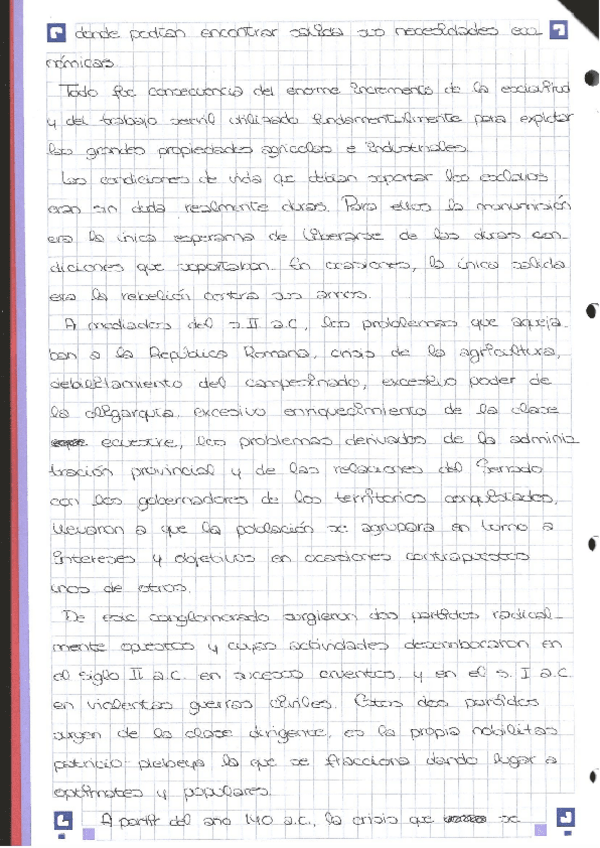 donde podían encontrar salida sus necesidades eco-
nómicas.
Todo fue consecuencia del enorme incremento de la esclavitud
y del trabajo servil utilizado fundamentalmente para explotar
las grandes propiedades agrícolas e industriales.
Las condiciones de vida que debían soportar los esclavos
eran sin duda realmente duras. Para ellos la manumisión
era la única esperanza de liberarse de las duras con-
diciones que soportaban. En ocasiones, la única salida
era la rebelión contra sus amos.
A mediados del s. II a.C., los problemas que aqueja-
ban a la República Romana, crisis de la agricultura,
debilitamiento del campesinado, excesivo poder de
la oligarquía, excesivo enriquecimiento de la clase
ecuestre, los problemas derivados de la adminis
tración provincial y de las relaciones del Senado
con los gobernadores de los territorios conquistados,
llevaron a que la población se agrupara en torno a
intereses y objetivos en ocasiones contrapuestos
unos de otros.
De este conglomerado surgieron dos partidos radical-
mente opuestos y cuyas actividades desembocaron en
el siglo II a.C. en sucesos cruentos, y en el s. I a.C.
en violentas guerras civiles. Estos dos partidos
surgen de la clase dirigente, es la propia nobilitas
patricio plebeya la que se fracciona dando lugar a
optimates y populares.
A partir del año 140 a.C., la crisis que se